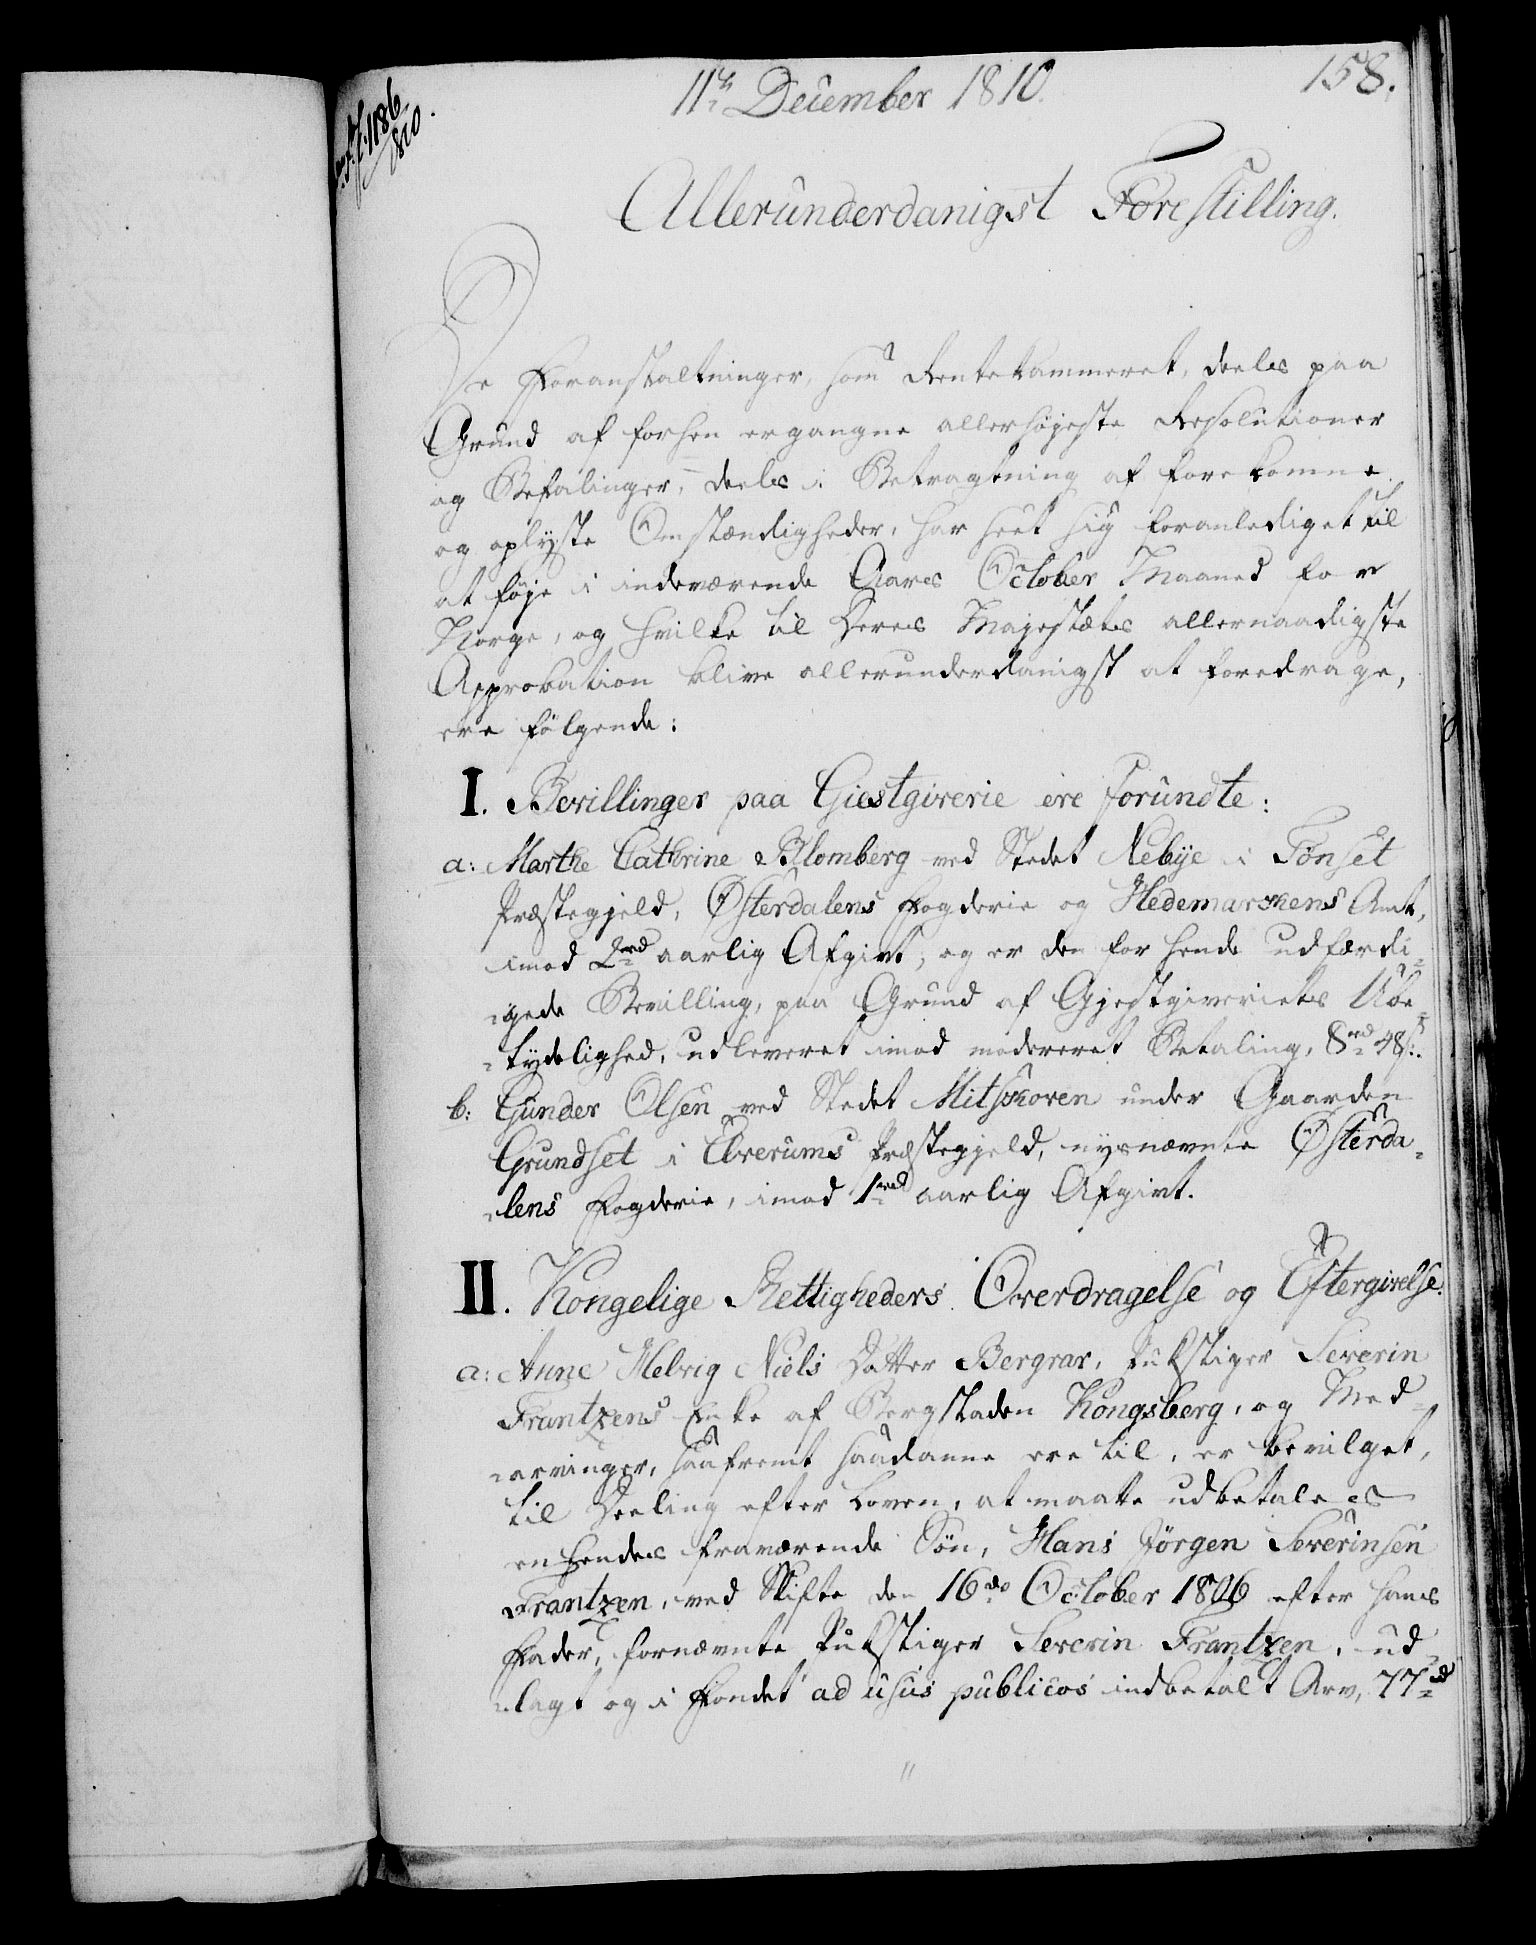 11te December 1810.
158.
1186
1810.
Allerunderdanigst Forestilling.
De Foranstaltninger, som Rentekammeret, deels paa
Grund af forhen ergangne allerhøjeste Resolutioner
og Befalinger, deels i Betragtning af forekomne
og oplyste Omstændigheder, har seet sig foranlediget til
at føje i indeværende Aars October Maaned for
Norge, og hvilke til Deres Majestæts allernaadigste
Approbation blive allerunderdanigst at foredrage,
ere følgende:
I. Bevillinger paa Giestgiverie ere forundte:
a: Marthe Cathrine Blomberg ved Stedet Nebye i Tønset
Præstegjeld, Østerdalens Fogderie og Hedemarkens Amt,
imod 2rd aarlig Afgivt, og er den for hende udfærdi-
-gede Bevilling, paa Grund af Gjestgiveriets Ube-
-tydelighed, udleveret imod modereret Betaling, 8rd 48s:
b: Gunder Olsen ved Stedet Mitskoven under Gaarden
Grundset i Elverums Præstegjeld, nysnævnte Østerda-
-lens Fogderie, imod 1rd aarlig Afgivt.
II. Kongelige Rettigheders Overdragelse og Eftergivelse:
a: Anne Helvig Niels Datter Bergrav, Pukstiger Severin
Frantzens Enke af Bergstaden Kongsberg, og Med-
-arvinger, saafremt saadanne ere til, er bevilget,
til Deeling efter Loven, at maatte udbetales
en hendes fraværende Søn, Hans Jørgen Severinsen
Frantzen, ved Skifte den 16de October 1806 efter hans
Fader, fornævnte Pukstiger Severin Frantzen, ud-
-lagt og i Fondet ad usus publicos indbetalt Arv, 77rd